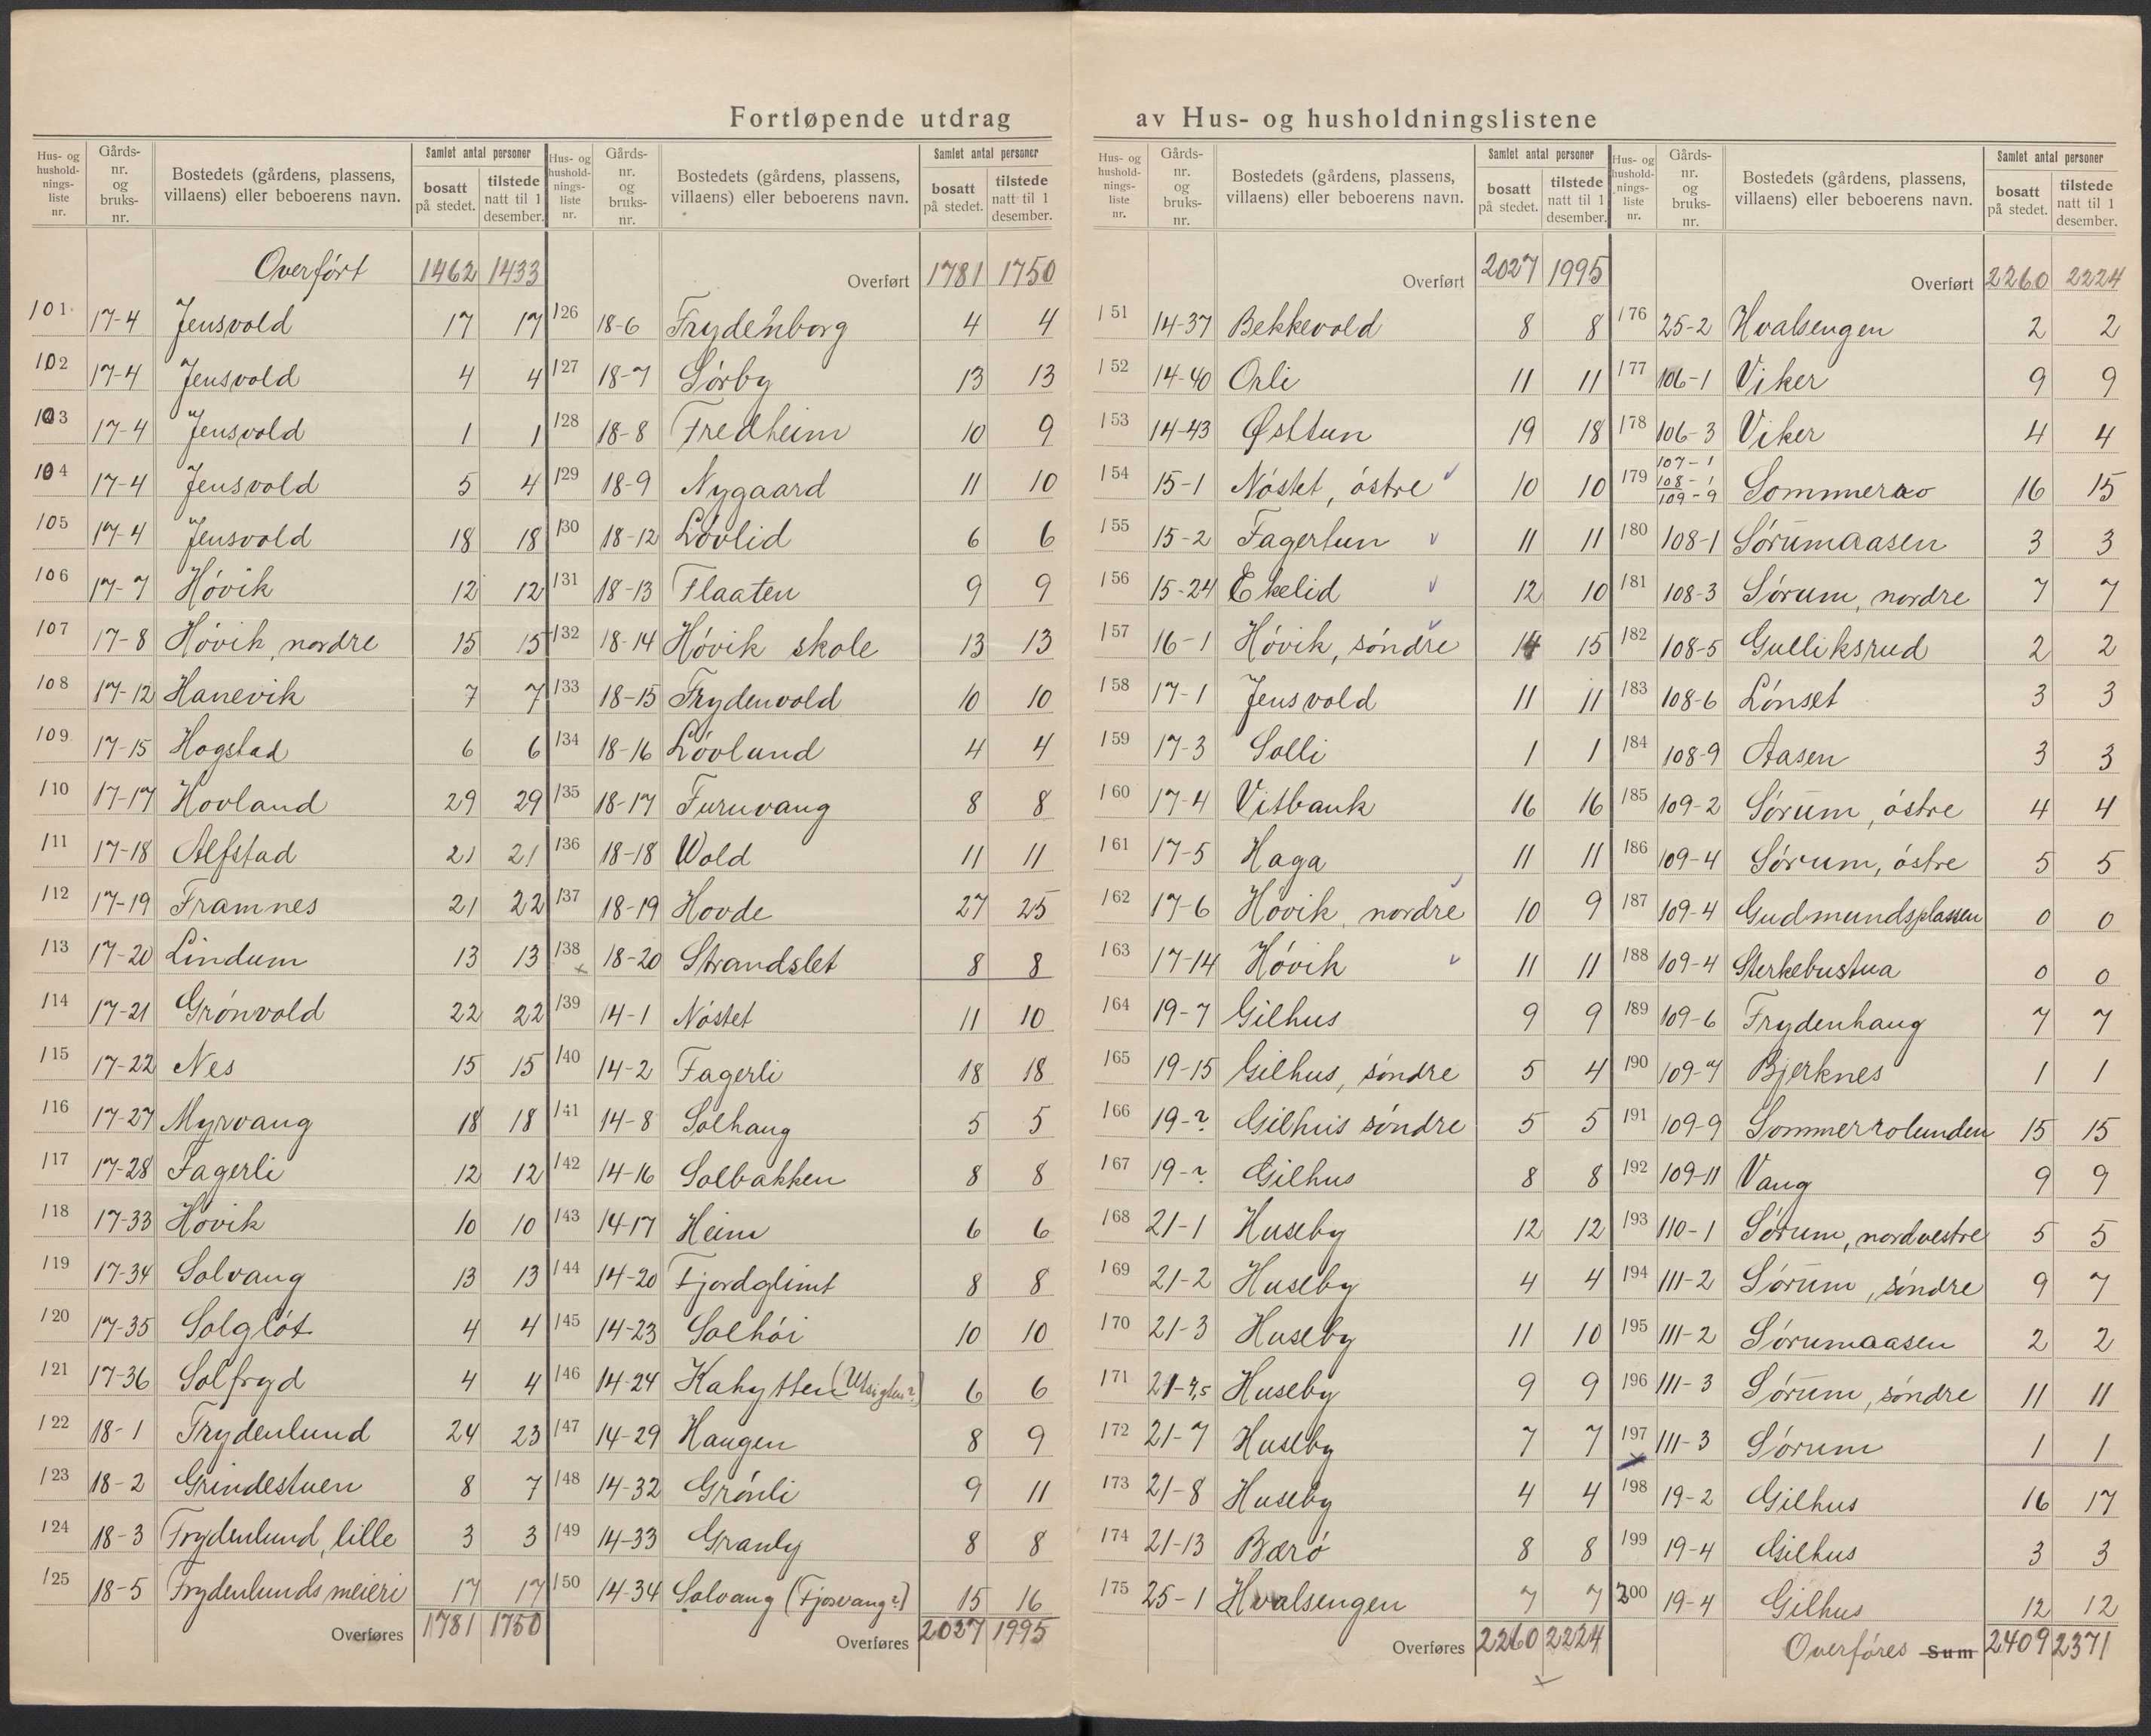 Fortløpende utdrag av Hus- og husholdningslistene
Hus- og husholdnings-liste nr. | Gårds-nr. og bruks-nr. | Bostedets (gårdens, plassens, villaens) eller beboerens navn. | Samlet antal personer: bosatt på stedet. | tilstede natt til 1 desember.
Overført 1462 1433
101 17-4 Jensvold 17 17
102 17-4 Jensvold 4 4
103 17-4 Jensvold 1 1
104 17-4 Jensvold 5 4
105 17-4 Jensvold 18 18
106 17-7 Høvik 12 12
107 17-8 Høvik, nordre 15 15
108 17-12 Hanevik 7 7
109 17-15 Hogstad 6 6
110 17-17 Hovland 29 29
111 17-18 Alfstad 21 21
112 17-19 Framnes 21 22
113 17-20 Lindum 13 13
114 17-21 Grønvold 22 22
115 17-22 Nes 15 15
116 17-27 Myrvang 18 18
117 17-28 Fagerli 12 12
118 17-33 Høvik 10 10
119 17-34 Solvang 13 13
120 17-35 Solgløt 4 4
121 17-36 Solfryd 4 4
122 18-1 Frydenlund 24 23
123 18-2 Grindestuen 8 7
124 18-3 Frydenlund, lille 3 3
125 18-5 Frydenlunds meieri 17 17
Overføres 1781 1750
Hus- og husholdnings-liste nr. | Gårds-nr. og bruks-nr. | Bostedets (gårdens, plassens, villaens) eller beboerens navn. | Samlet antal personer: bosatt på stedet. | tilstede natt til 1 desember.
Overført 1781 1750
126 18-6 Frydenborg 4 4
127 18-7 Sørby 13 13
128 18-8 Fredheim 10 9
129 18-9 Nygaard 11 10
130 18-12 Løvlid 6 6
131 18-13 Flaaten 9 9
132 18-14 Høvik skole 13 13
133 18-15 Frydenvold 10 10
134 18-16 Løvlund 4 4
135 18-17 Furuvang 8 8
136 18-18 Wold 11 11
137 18-19 Hovde 27 25
138 18-20 Strandslet 8 8
139 14-1 Nøstet 11 10
140 14-2 Fagerli 18 18
141 14-8 Solhaug 5 5
142 14-16 Solbakken 8 8
143 14-17 Heim 6 6
144 14-20 Fjordglimt 8 8
145 14-23 Solhøi 10 10
146 14-24 Kahytten (Utsigten?) 6 6
147 14-29 Haugen 8 9
148 14-32 Grønli 9 11
149 14-33 Granly 8 8
150 14-34 Solvang (Fjosvang?) 15 16
Overføres 2027 1995
Hus- og husholdnings-liste nr. | Gårds-nr. og bruks-nr. | Bostedets (gårdens, plassens, villaens) eller beboerens navn. | Samlet antal personer: bosatt på stedet. | tilstede natt til 1 desember.
Overført 2027 1995
151 14-37 Bekkevold 8 8
152 14-40 Orli 11 11
153 14-43 Østtun 19 18
154 15-1 Nøstet, østre 10 10
155 15-2 Fagertun 11 11
156 15-24 Ekelid 12 10
157 16-1 Høvik, søndre 14 15
158 17-1 Jensvold 11 11
159 17-3 Solli 1 1
160 17-4 Vitbank 16 16
161 17-5 Haga 11 11
162 17-6 Høvik, nordre 10 9
163 17-14 Høvik 11 11
164 19-7 Gilhus 9 9
165 19-15 Gilhus, søndre 5 4
166 19-? Gilhus søndre 5 5
167 19-? Gilhus 8 8
168 21-1 Huseby 12 12
169 21-2 Huseby 4 4
170 21-3 Huseby 11 10
171 21-4,5 Huseby 9 9
172 21-7 Huseby 7 7
173 21-8 Huseby 4 4
174 21-13 Bærø 8 8
175 25-1 Hvalsengen 7 7
Overføres 2260 2224
Hus- og husholdnings-liste nr. | Gårds-nr. og bruks-nr. | Bostedets (gårdens, plassens, villaens) eller beboerens navn. | Samlet antal personer: bosatt på stedet. | tilstede natt til 1 desember.
Overført 2260 2224
176 25-2 Hvalsengen 2 2
177 106-1 Viker 9 9
178 106-3 Viker 4 4
179 107-1 108-1 109-9 Sommerro 16 15
180 108-1 Sørumaasen 3 3
181 108-3 Sørum, nordre 7 7
182 108-5 Gulliksrud 2 2
183 108-6 Lønset 3 3
184 108-9 Aasen 3 3
185 109-2 Sørum, østre 4 4
186 109-4 Sørum, østre 5 5
187 109-4 Gudmundsplassen 0 0
188 109-4 Sterkebustua 0 0
189 109-6 Frydenhaug 7 7
190 109-7 Bjerknes 1 1
191 109-9 Sommerrolunden 15 15
192 109-11 Vang 9 9
193 110-1 Sørum, nordvestre 5 5
194 111-2 Sørum, søndre 9 7
195 111-2 Sørumaasen 2 2
196 111-3 Sørum, søndre 11 11
197 111-3 Sørum 1 1
198 19-2 Gilhus 16 17
199 19-4 Gilhus 3 3
200 19-4 Gilhus 12 12
Overføres Sum 2409 2371